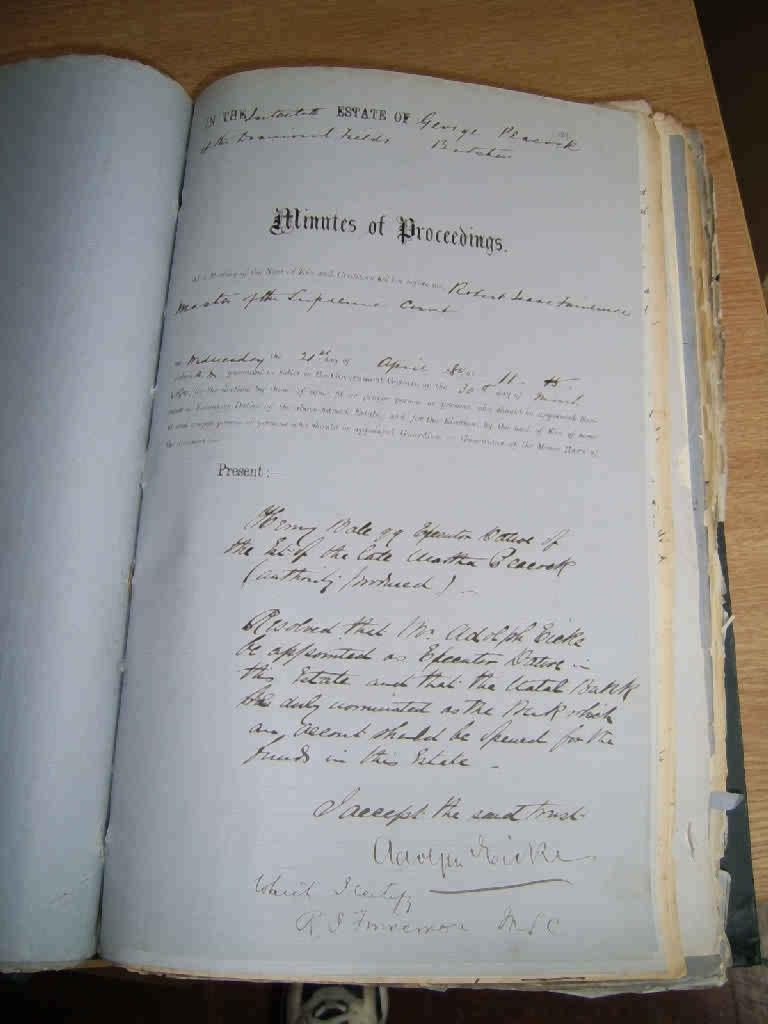 IN THE Intestate ESTATE OF George Peacock
of the Diamond Fields Butcher
Minutes of Proceedings.
At a Meeting of the Next of Kin and Creditors held before me, Robert Isaac Finnemore
Master of the Supreme Court
on Wednesday the 21st day of April
30th day of March
for the Election by them of some fit or proper person or persons who should be appointed Exe-
cutor or Executors Dative of the above-named Estate, and for the Election by the next of Kin of some
fit and proper person or persons who should be appointed Guardian or Guardians of the Minor Heirs of
the deceased
Present:
Henry Bale qq Executor Dative of
the Est. of the late Martha Peacock
(authority produced) –
Resolved that Mr. Adolph Eicke
be appointed as Executor Dative in
this Estate and that the Natal Bank
be duly nominated as the Bank which
any account should be opened for the
funds in this Estate –
I accept the said trust
Adolph Eicke
Which I certify
R I Finnemore M S C